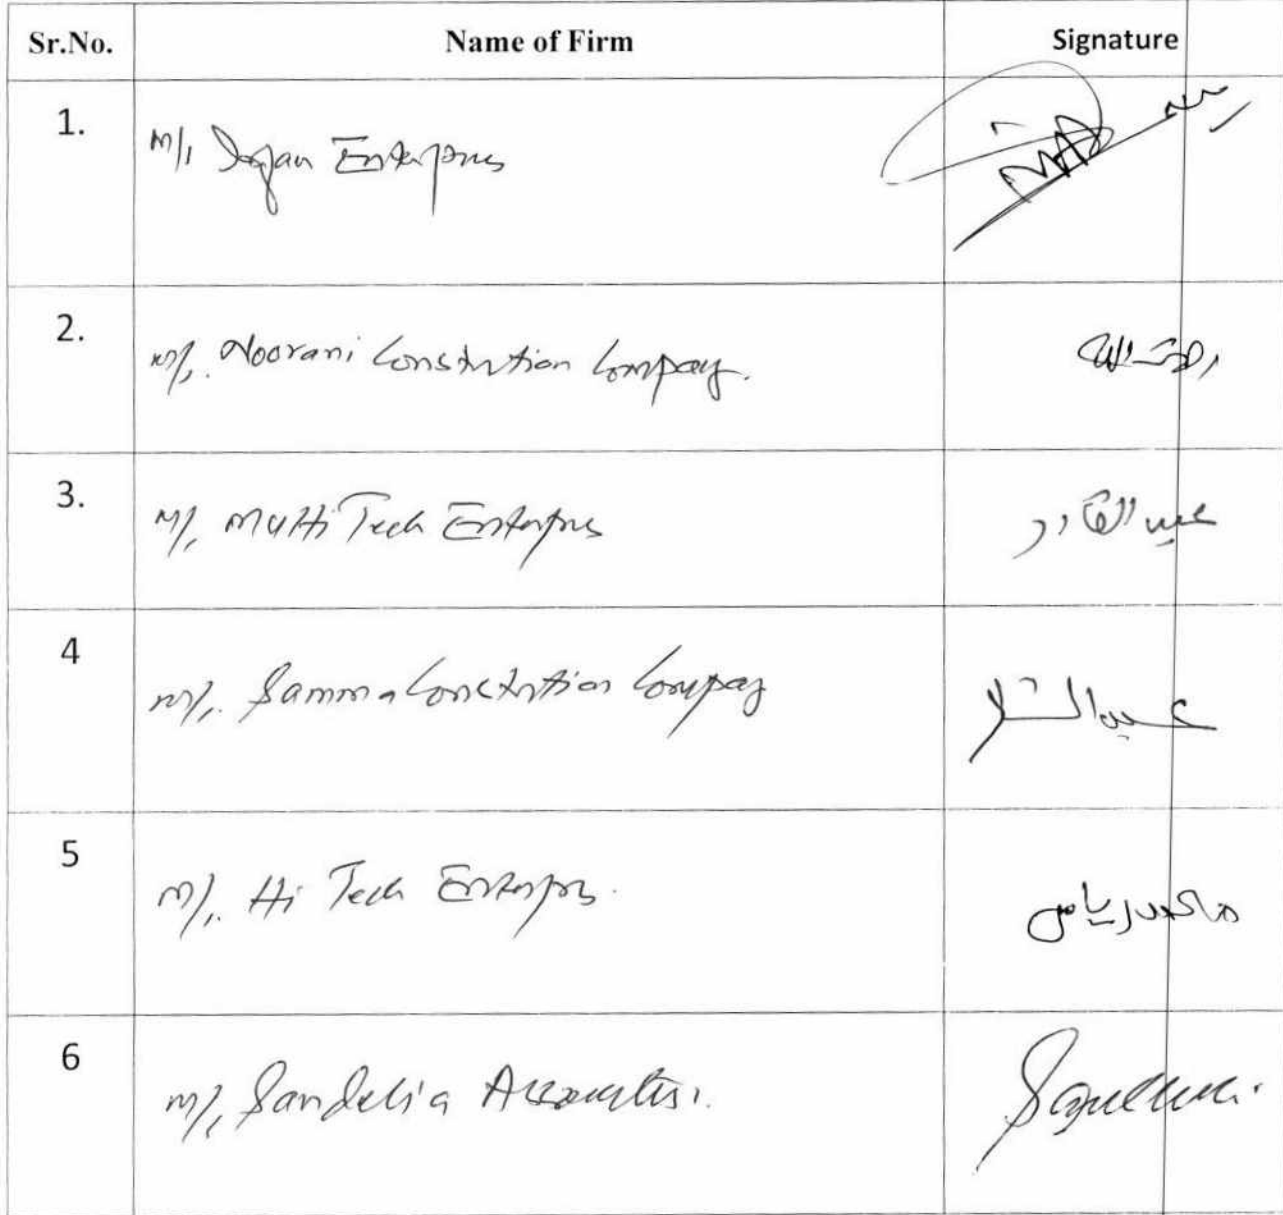 Sr.No. Name of Firm Signature
1. M/s Irfan Enterprises
2. M/s. Noorani Constrution Company.
3. M/s Multi Tech Enterprises
عبدالقادر
4 M/s. Samma Constrution Company
عبدالستار
5 M/s. Hi Tech Enterprises.
6 M/s Sandelia Associates.